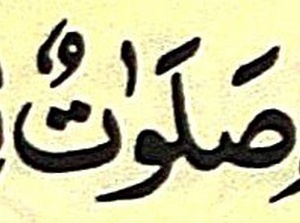 صَلَوَٰتٌ